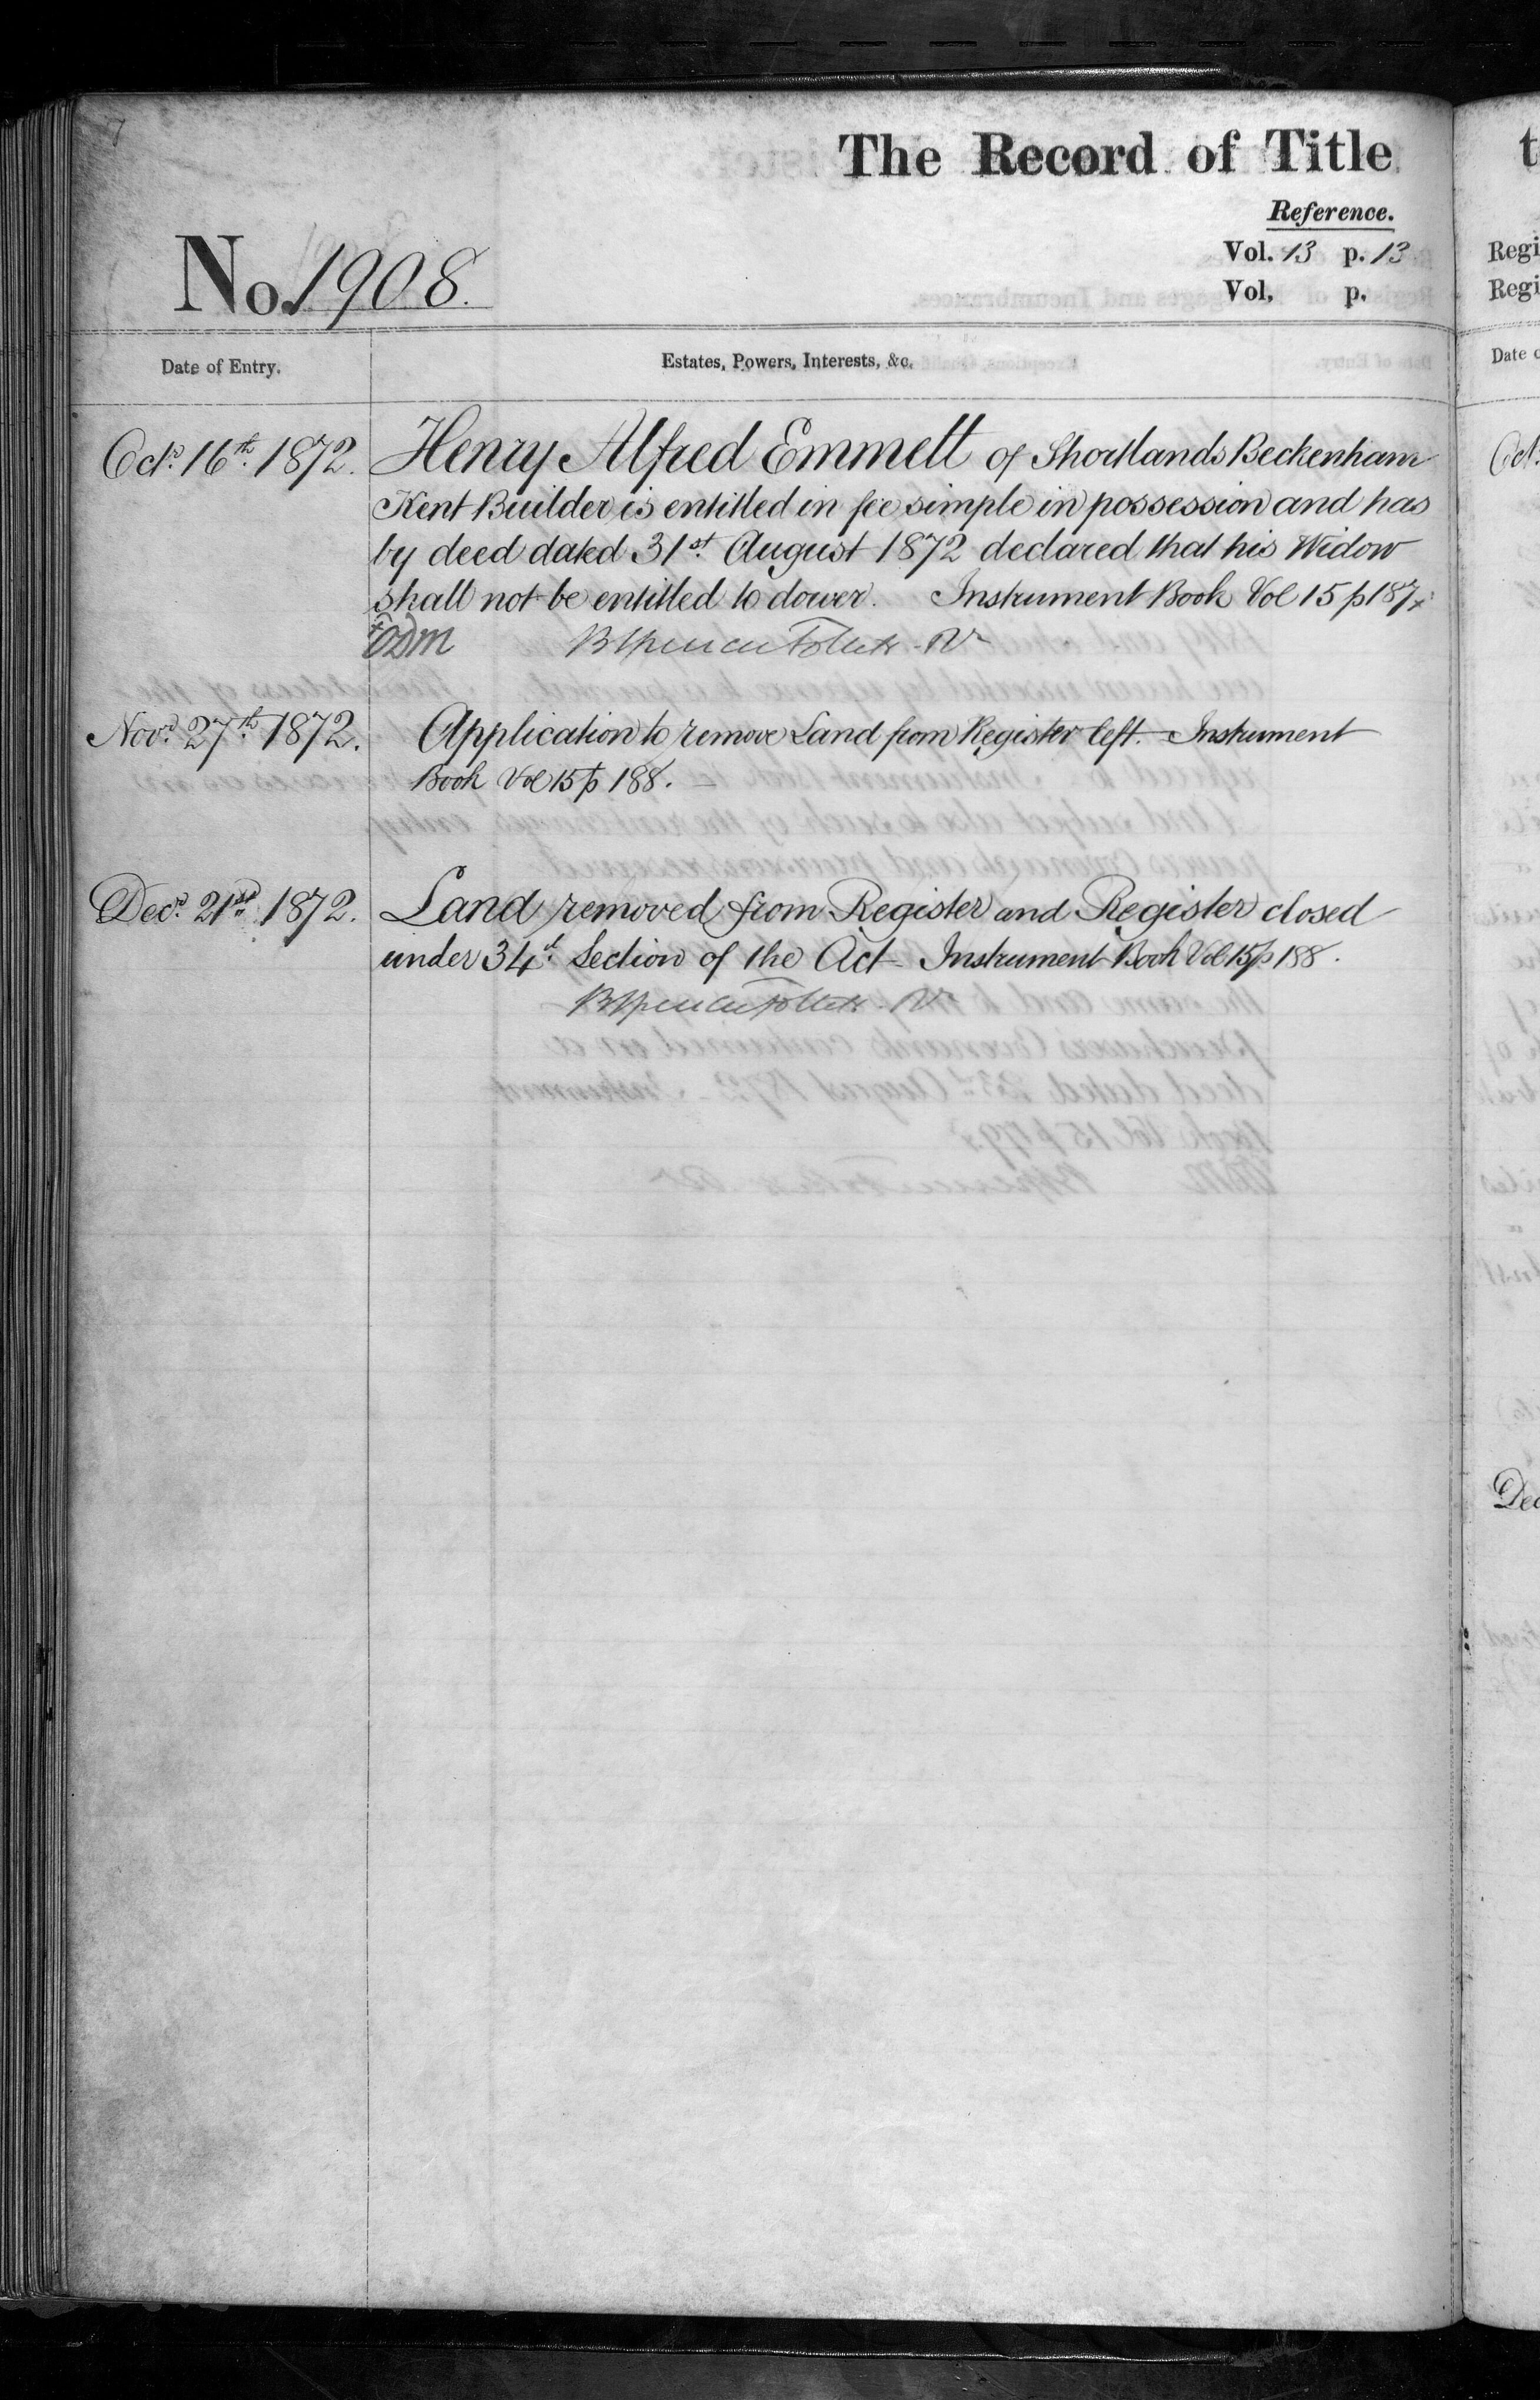 The Record of Title
Reference.
No. 1908.
Vol. 13 p. 13
Vol, p.
Date of Entry.
Estates, Powers, Interests, &c.
Octr. 16th. 1872.
Henry Alfred Emmett of Shortlands Beckenham
Kent Builder is entitled in fee simple in possession and has
by deed dated 31st. August 1872 declared that his Widow
shall not be entitled to dower. Instrument Book Vol 15 p 187 x
x ODM
Novr. 27th. 1872.
Application to remove Land from Register left. Instrument
Book Vol 15 p 188.
Decr. 21st. 1872.
Land removed from Register and Register closed
under 34th. Section of the Act Instrument Book Vol 15 p 188.
t
Regi
Regi
Date
Oct
Dec